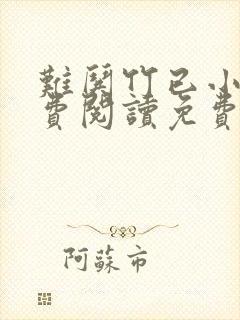 難鬪竹已小
費閱讀免費
阿蘇市